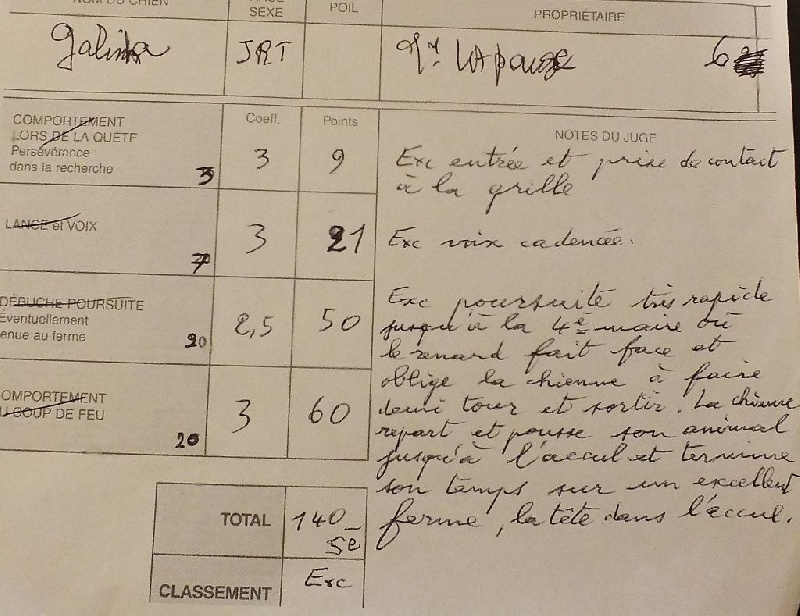 NOM DU CHIEN RACE SEXE POIL PROPRIÉTAIRE
Galinka JRT Mr LAPOUGE 6
COMPORTEMENT Coeff. Points
LORS DE LA QUETE NOTES DU JUGE
Persévérance
dans la recherche 3 3 9
Exc entrée et prise de contact
à la grille
LANCE et VOIX 7 3 21
Exc voix cadencée.
DÉBUCHE POURSUITE
Éventuellement
tenue au ferme 20 2,5 50
Exc poursuite très rapide
jusqu'à la 4e maire où
le renard fait face et
oblige la chienne à faire
demi tour et sortir. La chienne
repart et pousse son animal
jusqu'à l'accul et termine
son temps sur un excellent
ferme, la tête dans l'accul.
COMPORTEMENT
AU COUP DE FEU 20 3 60
TOTAL 140 5e
CLASSEMENT Exc